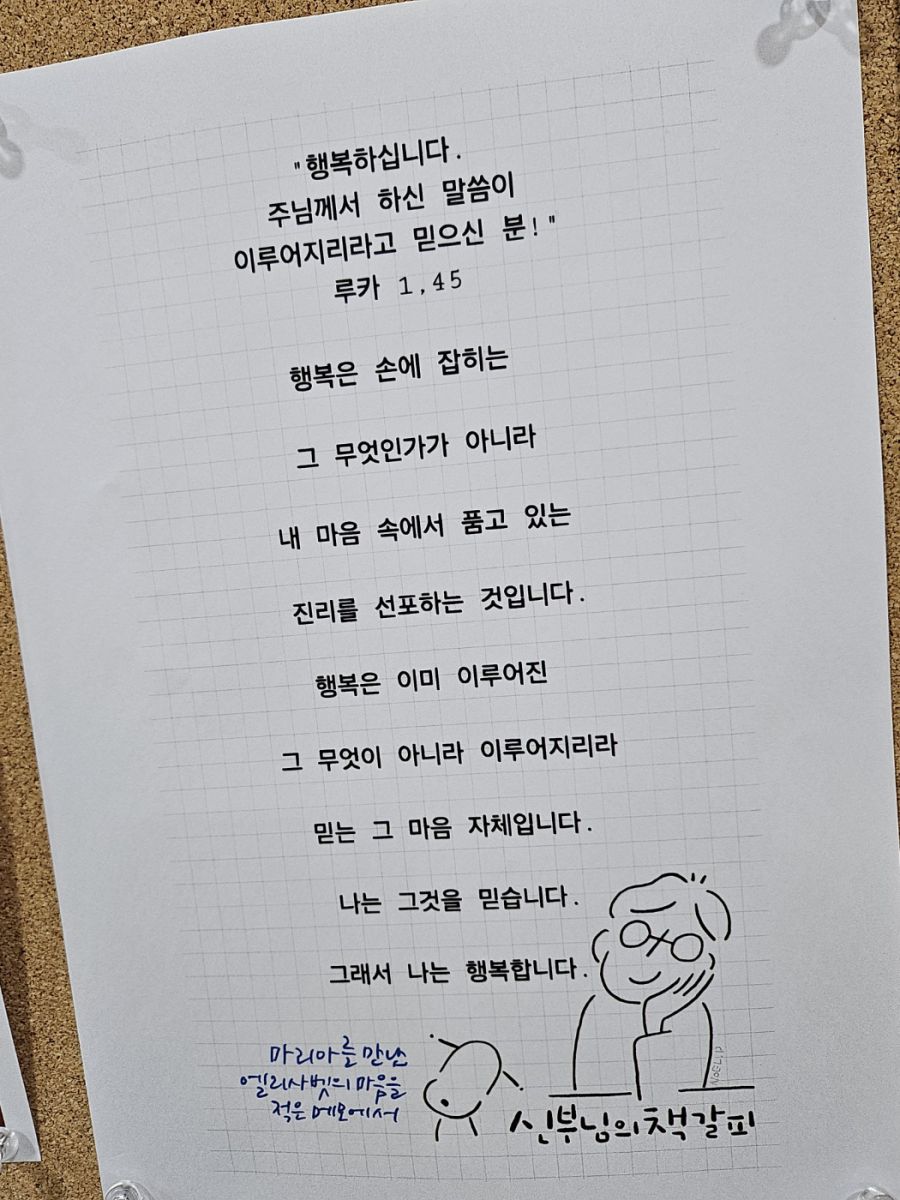 "행복하십니다.
주님께서 하신 말씀이
이루어지리라고 믿으신 분!"
루카 1,45
행복은 손에 잡히는
그 무엇인가가 아니라
내 마음 속에서 품고 있는
진리를 선포하는 것입니다.
행복은 이미 이루어진
그 무엇이 아니라 이루어지리라
믿는 그 마음 자체입니다.
나는 그것을 믿습니다.
그래서 나는 행복합니다.
마리아를 만난
엘리사벳의 마음을
적은 메모에서
신부님의 책갈피